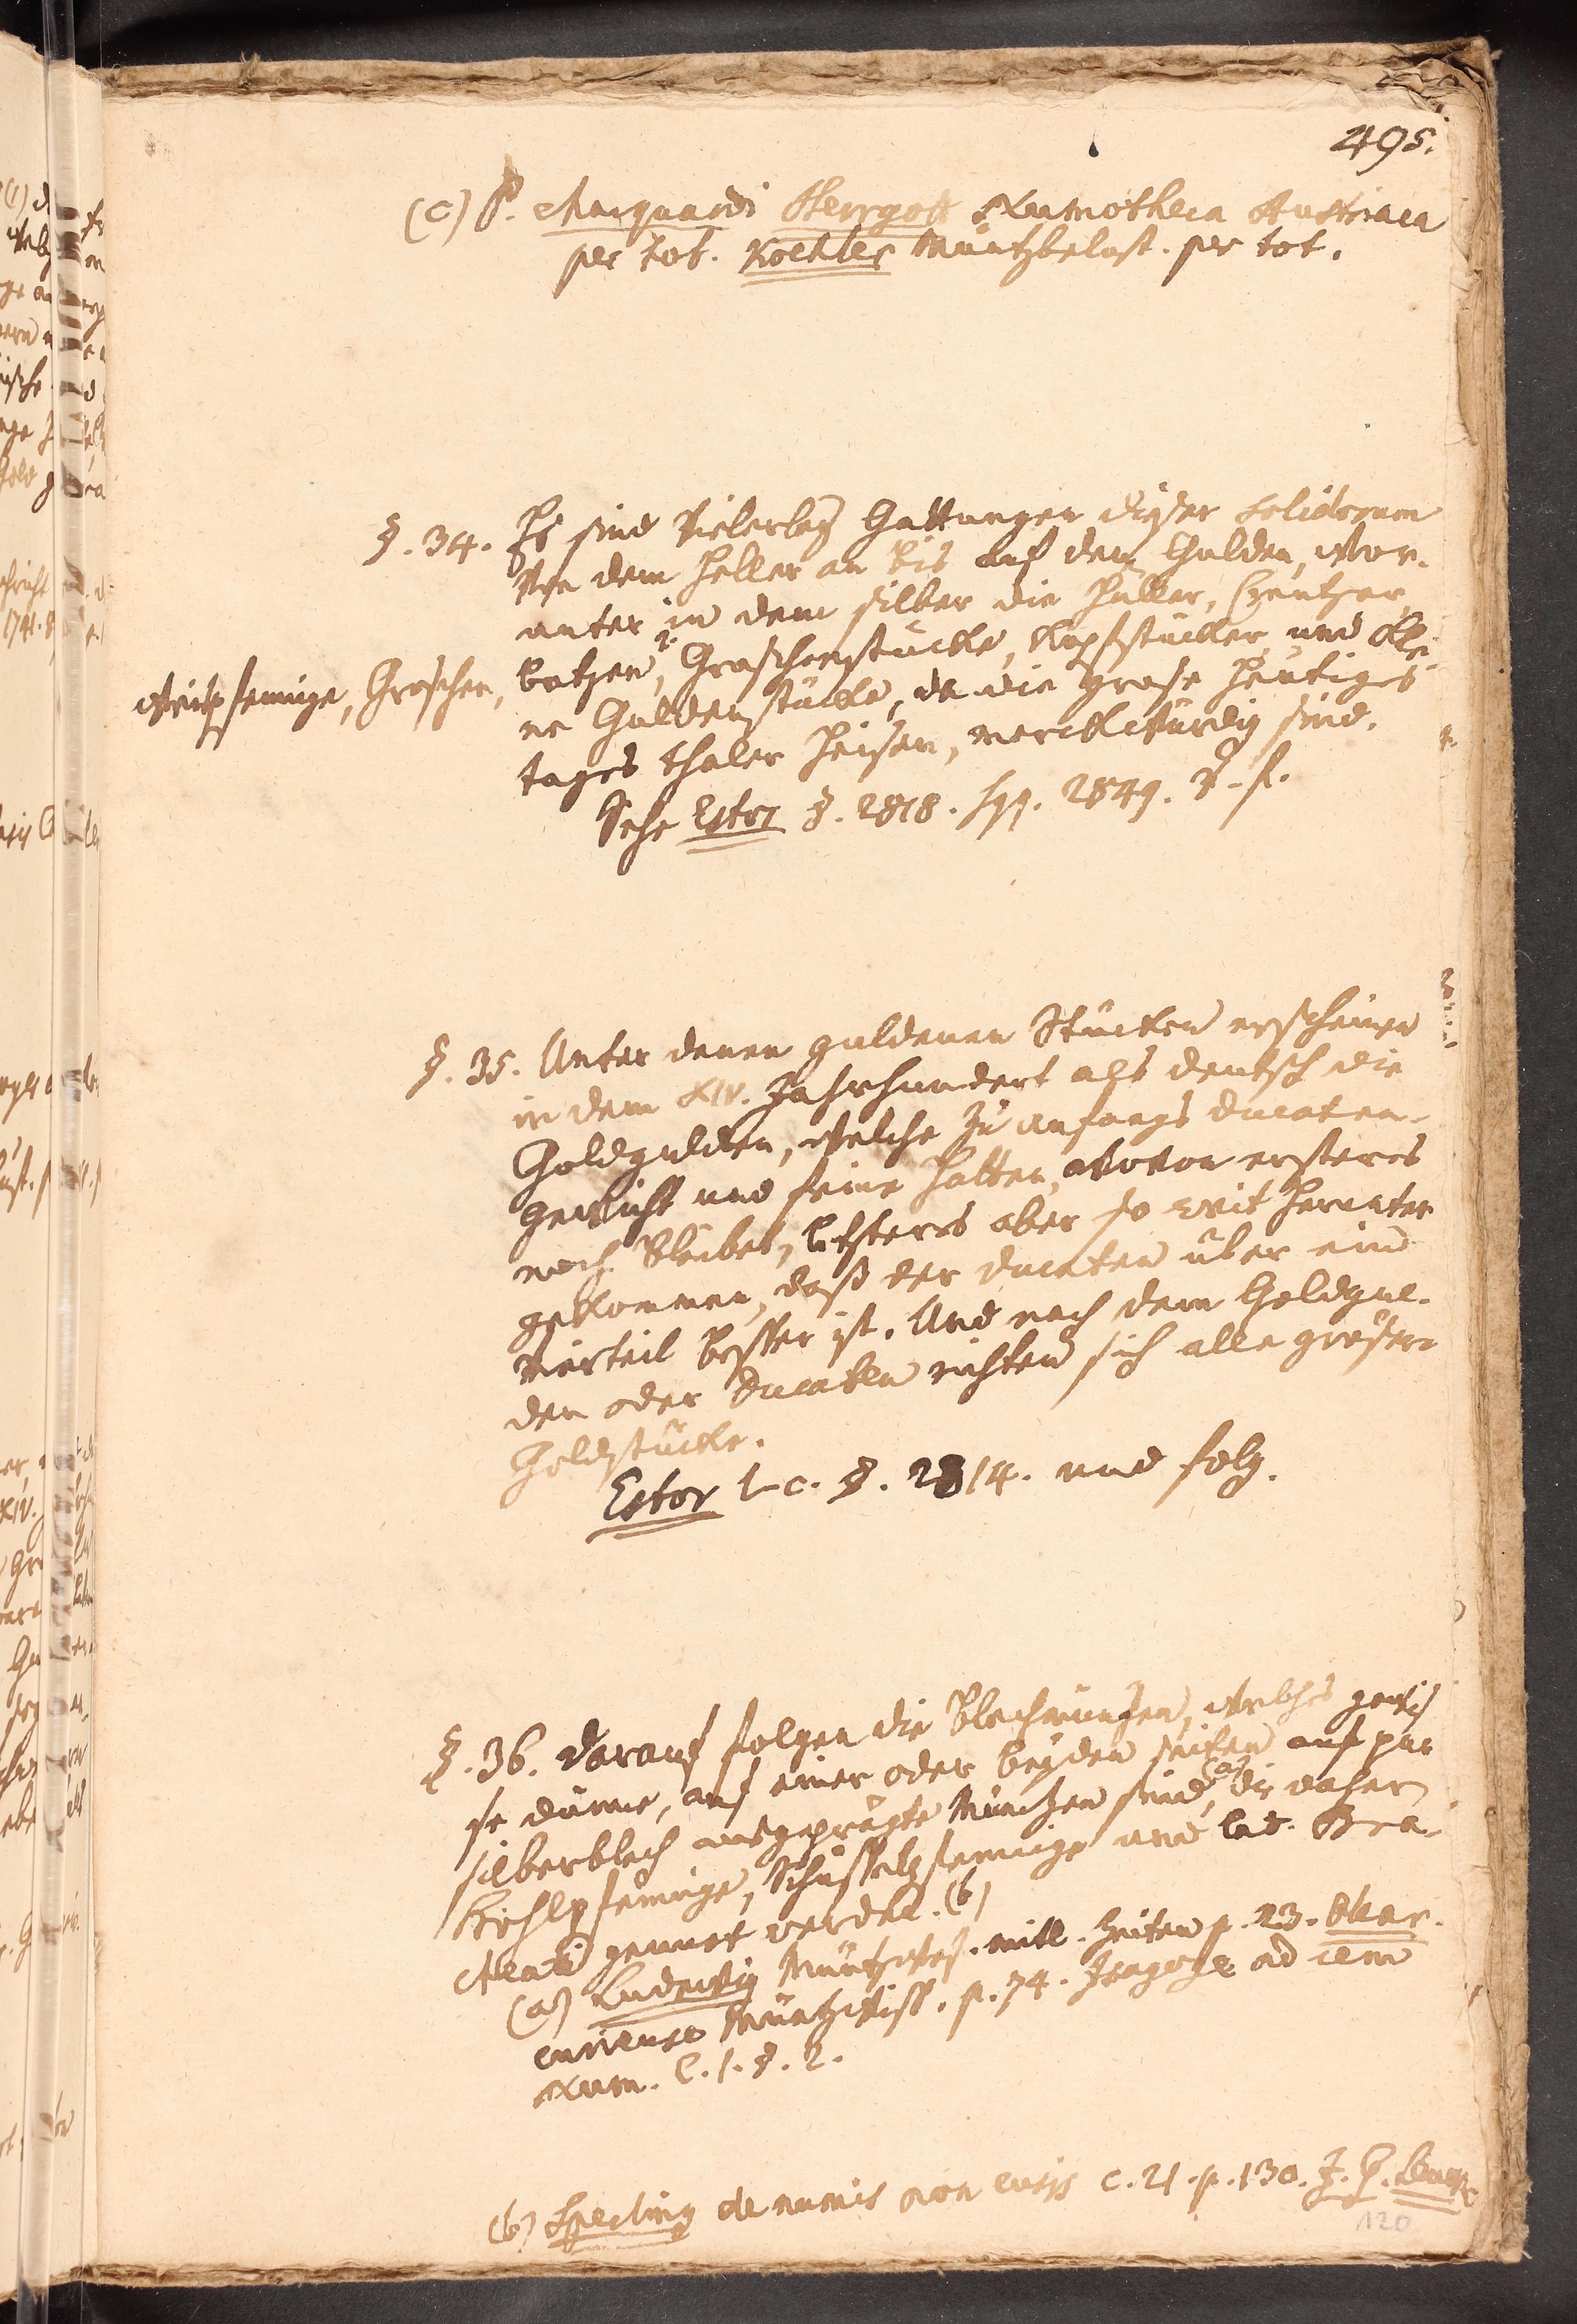 495.
(c) P. Marquardi Herrgott Numotheca Austriaca
per tot. Koehler Müntzbelust. per tot.
§. 34. Es sind vielerley Gattungen dieser solidorum
Von dem Heller an bis auf den Gulden, Wor-
unter in dem silber die Heller, Creutzer,
Weispfennige, Groschen, batzen, Groschenstücke, Kopfstücker, und klei-
ne Guldenstücke, da die grose heutiges
tages thaler heisen, merckwürdig sind.
Sehe Estor §. 2818. sqq. 2849. u. f.
§. 35. Unter denen guldenen Stücken erscheinen
in dem XIV. Jahrhundert als deutsch die
Goldgulden, welche zu anfangs ducaten-
gewicht und feine hatten, wovon ersteres
noch bleibet, letsteres aber so weit herunter
gekommen, daß der ducaten über ein
Vierteil besser ist. Und nach dem Goldgul-
den oder Ducaten richten sich alle grösere
Goldstücke.
Estor l. c. §. 2814. und folg.
§. 36. Darauf folgen die Blechmünzen, welches gewis-
se dünne, auf einer oder beyden seiten auf pur
silberblech ausgeprägte Müntzen sind, (a) die daher
Hohlpfennige, Schüsselpfennige und lat. Bra-
cteati genent werden. (b)
(a) Ludewig Müntzwes. mitl. Zeiten p. 23. Ober.
curieuse Müntzwiss. p. 74. Isagoge ad rem
Num. C. 1. §. 2.
(b) Sperling de numis non cusis c. 21. p. 130. J. C.
120